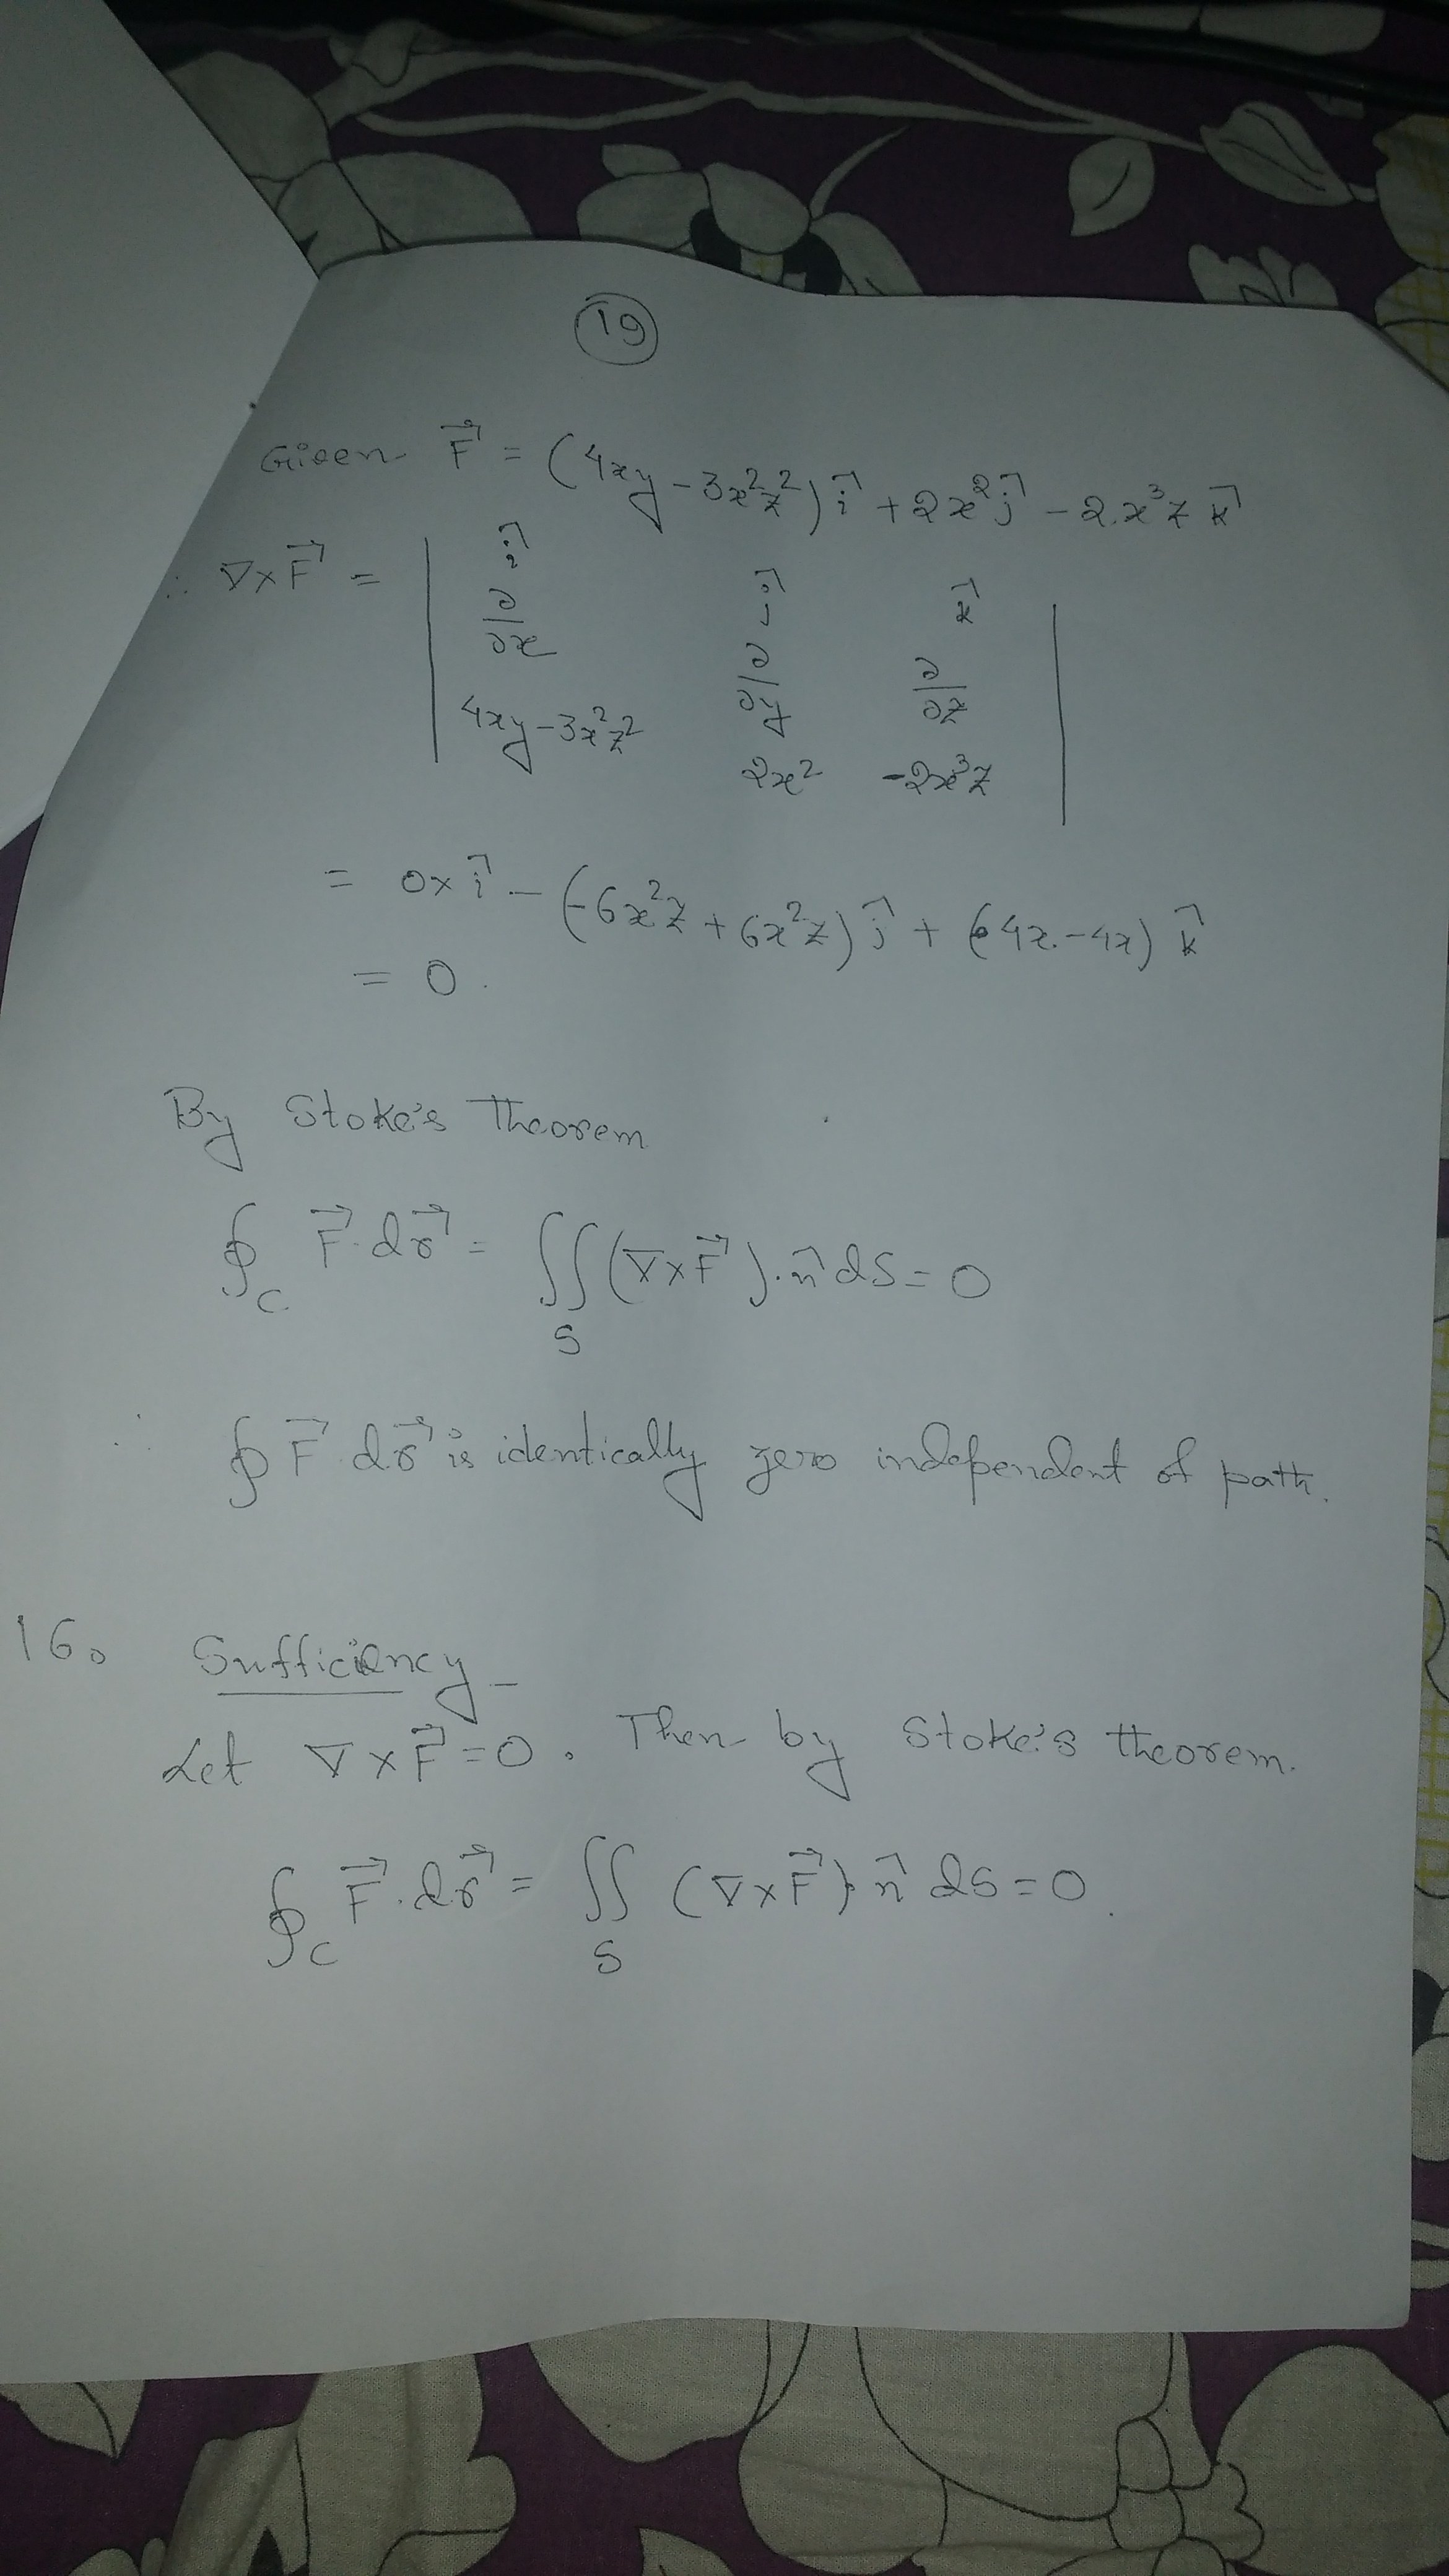 19
Given F⃗ = (4xy - 3x²z²) î + 2x² ĵ - 2.x³z k̂
∴ ∇×F⃗ = | î ĵ k̂ |
| ∂/∂x ∂/∂y ∂/∂z |
| 4xy-3x²z² 2x² -2x³z |
= 0× î - (-6x²z + 6x²z) ĵ + (4x - 4x) k̂
= 0.
By Stoke's Theorem
∮_C F⃗.dr⃗ = ∬_S (∇×F⃗).n̂ dS = 0
∴ ∮ F⃗.dr⃗ is identically zero independent of path.
16. Sufficiency -
Let ∇×F⃗ = 0. Then by Stoke's theorem.
∮_C F⃗.dr⃗ = ∬_S (∇×F⃗).n̂ dS = 0.